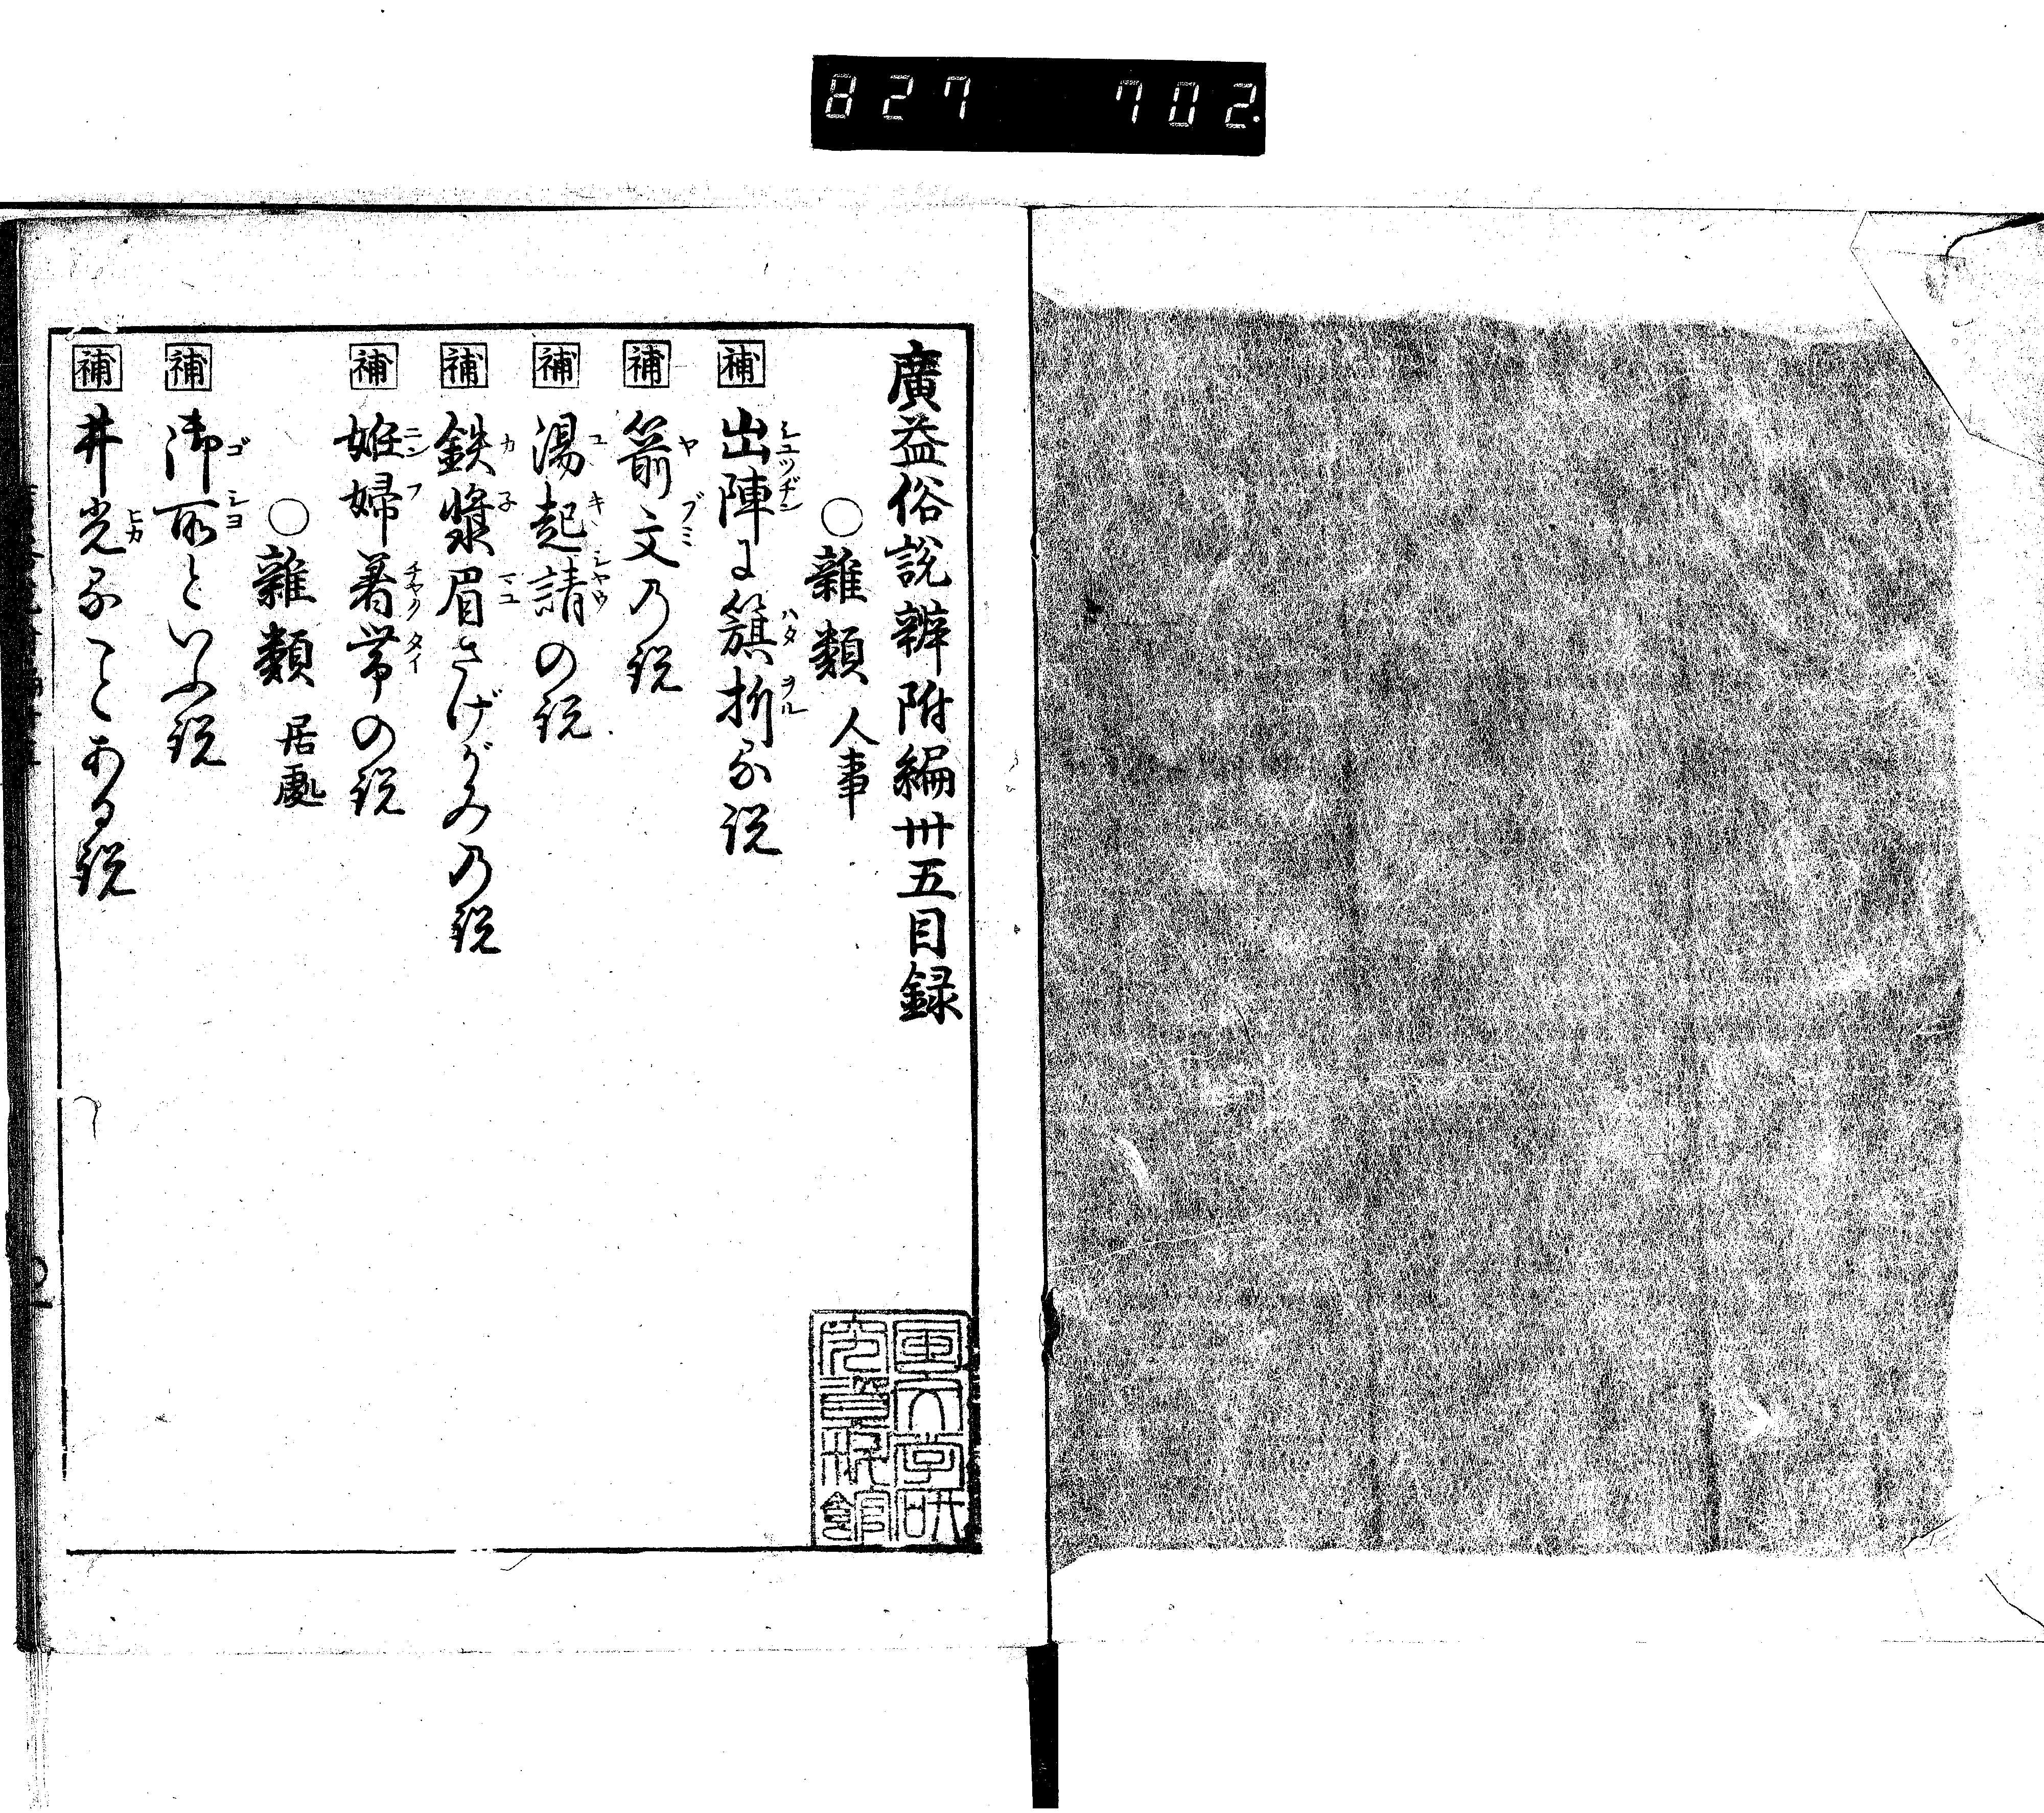 827 702
廣益俗說辨附編卅五目録
○雜類 人事
補 出陣に籏折る説
補 箭文乃説
補 湯起請の説
補 鉄漿眉さげがみ乃説
補 姙婦着帯の説
○雜類 居處
補 御所といふ説
補 井光ることある説
国文学研究資料館